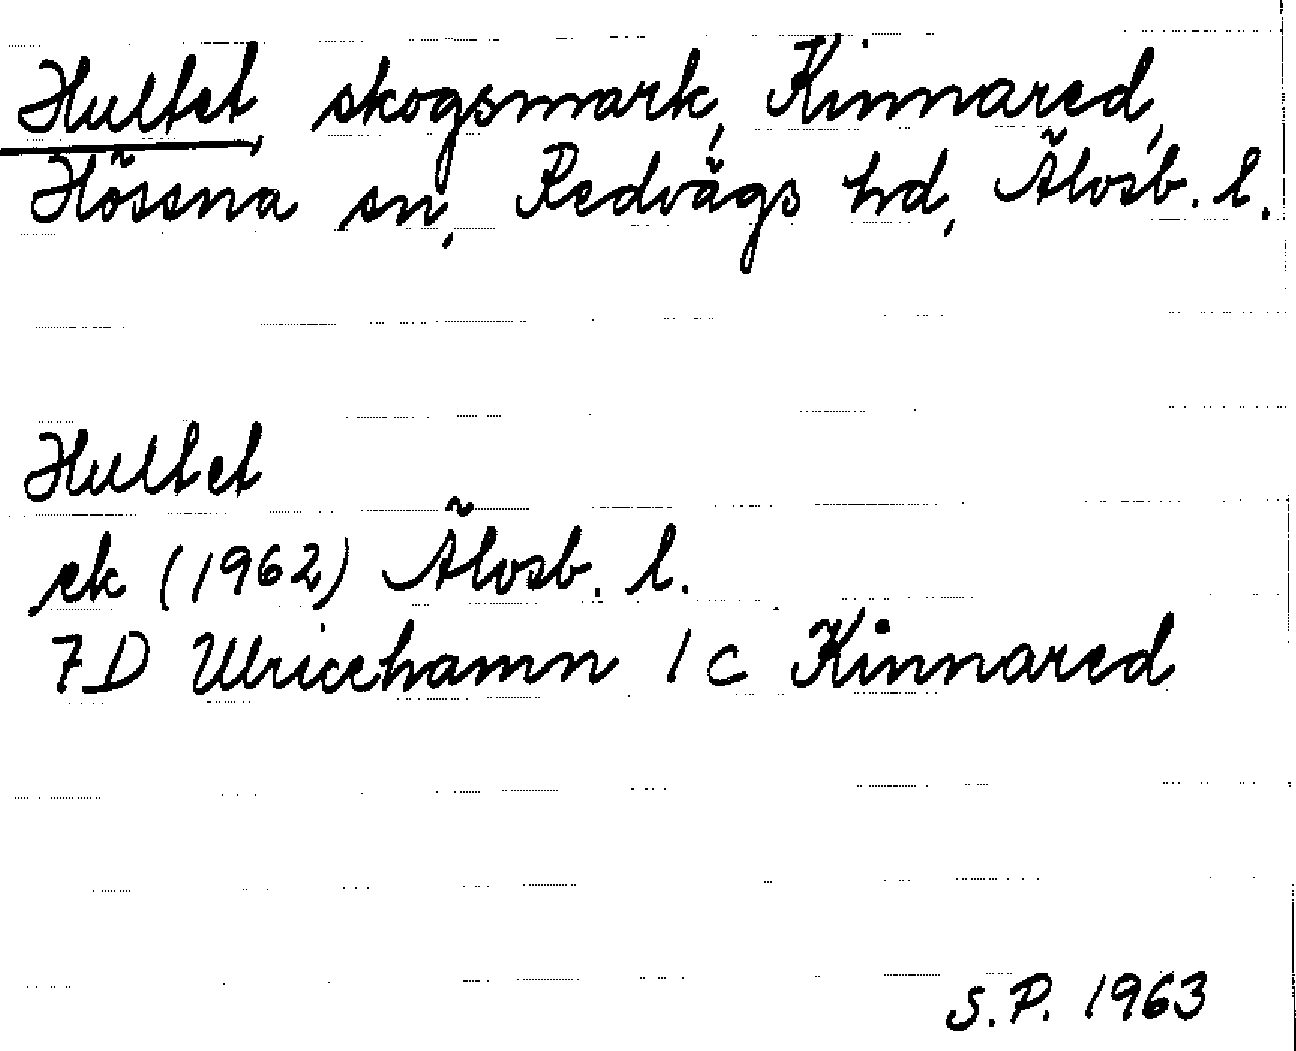 Hultet, skogsmark, Kinnared,
Hössna sn, Redvägs hd, Älvsb. l.
Hultet
ek (1962) Älvsb. l.
7D Ulricehamn 1c Kinnared
S.P. 1963